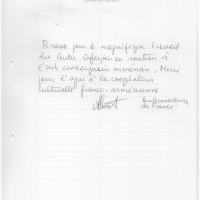 Bravo pour le magnifique travail
du Centre Cafesjian en soutien à
l'art contemporain arménien. Merci
pour l'appui à la coopération
culturelle franco-arménienne.
Ambassadeur
de France